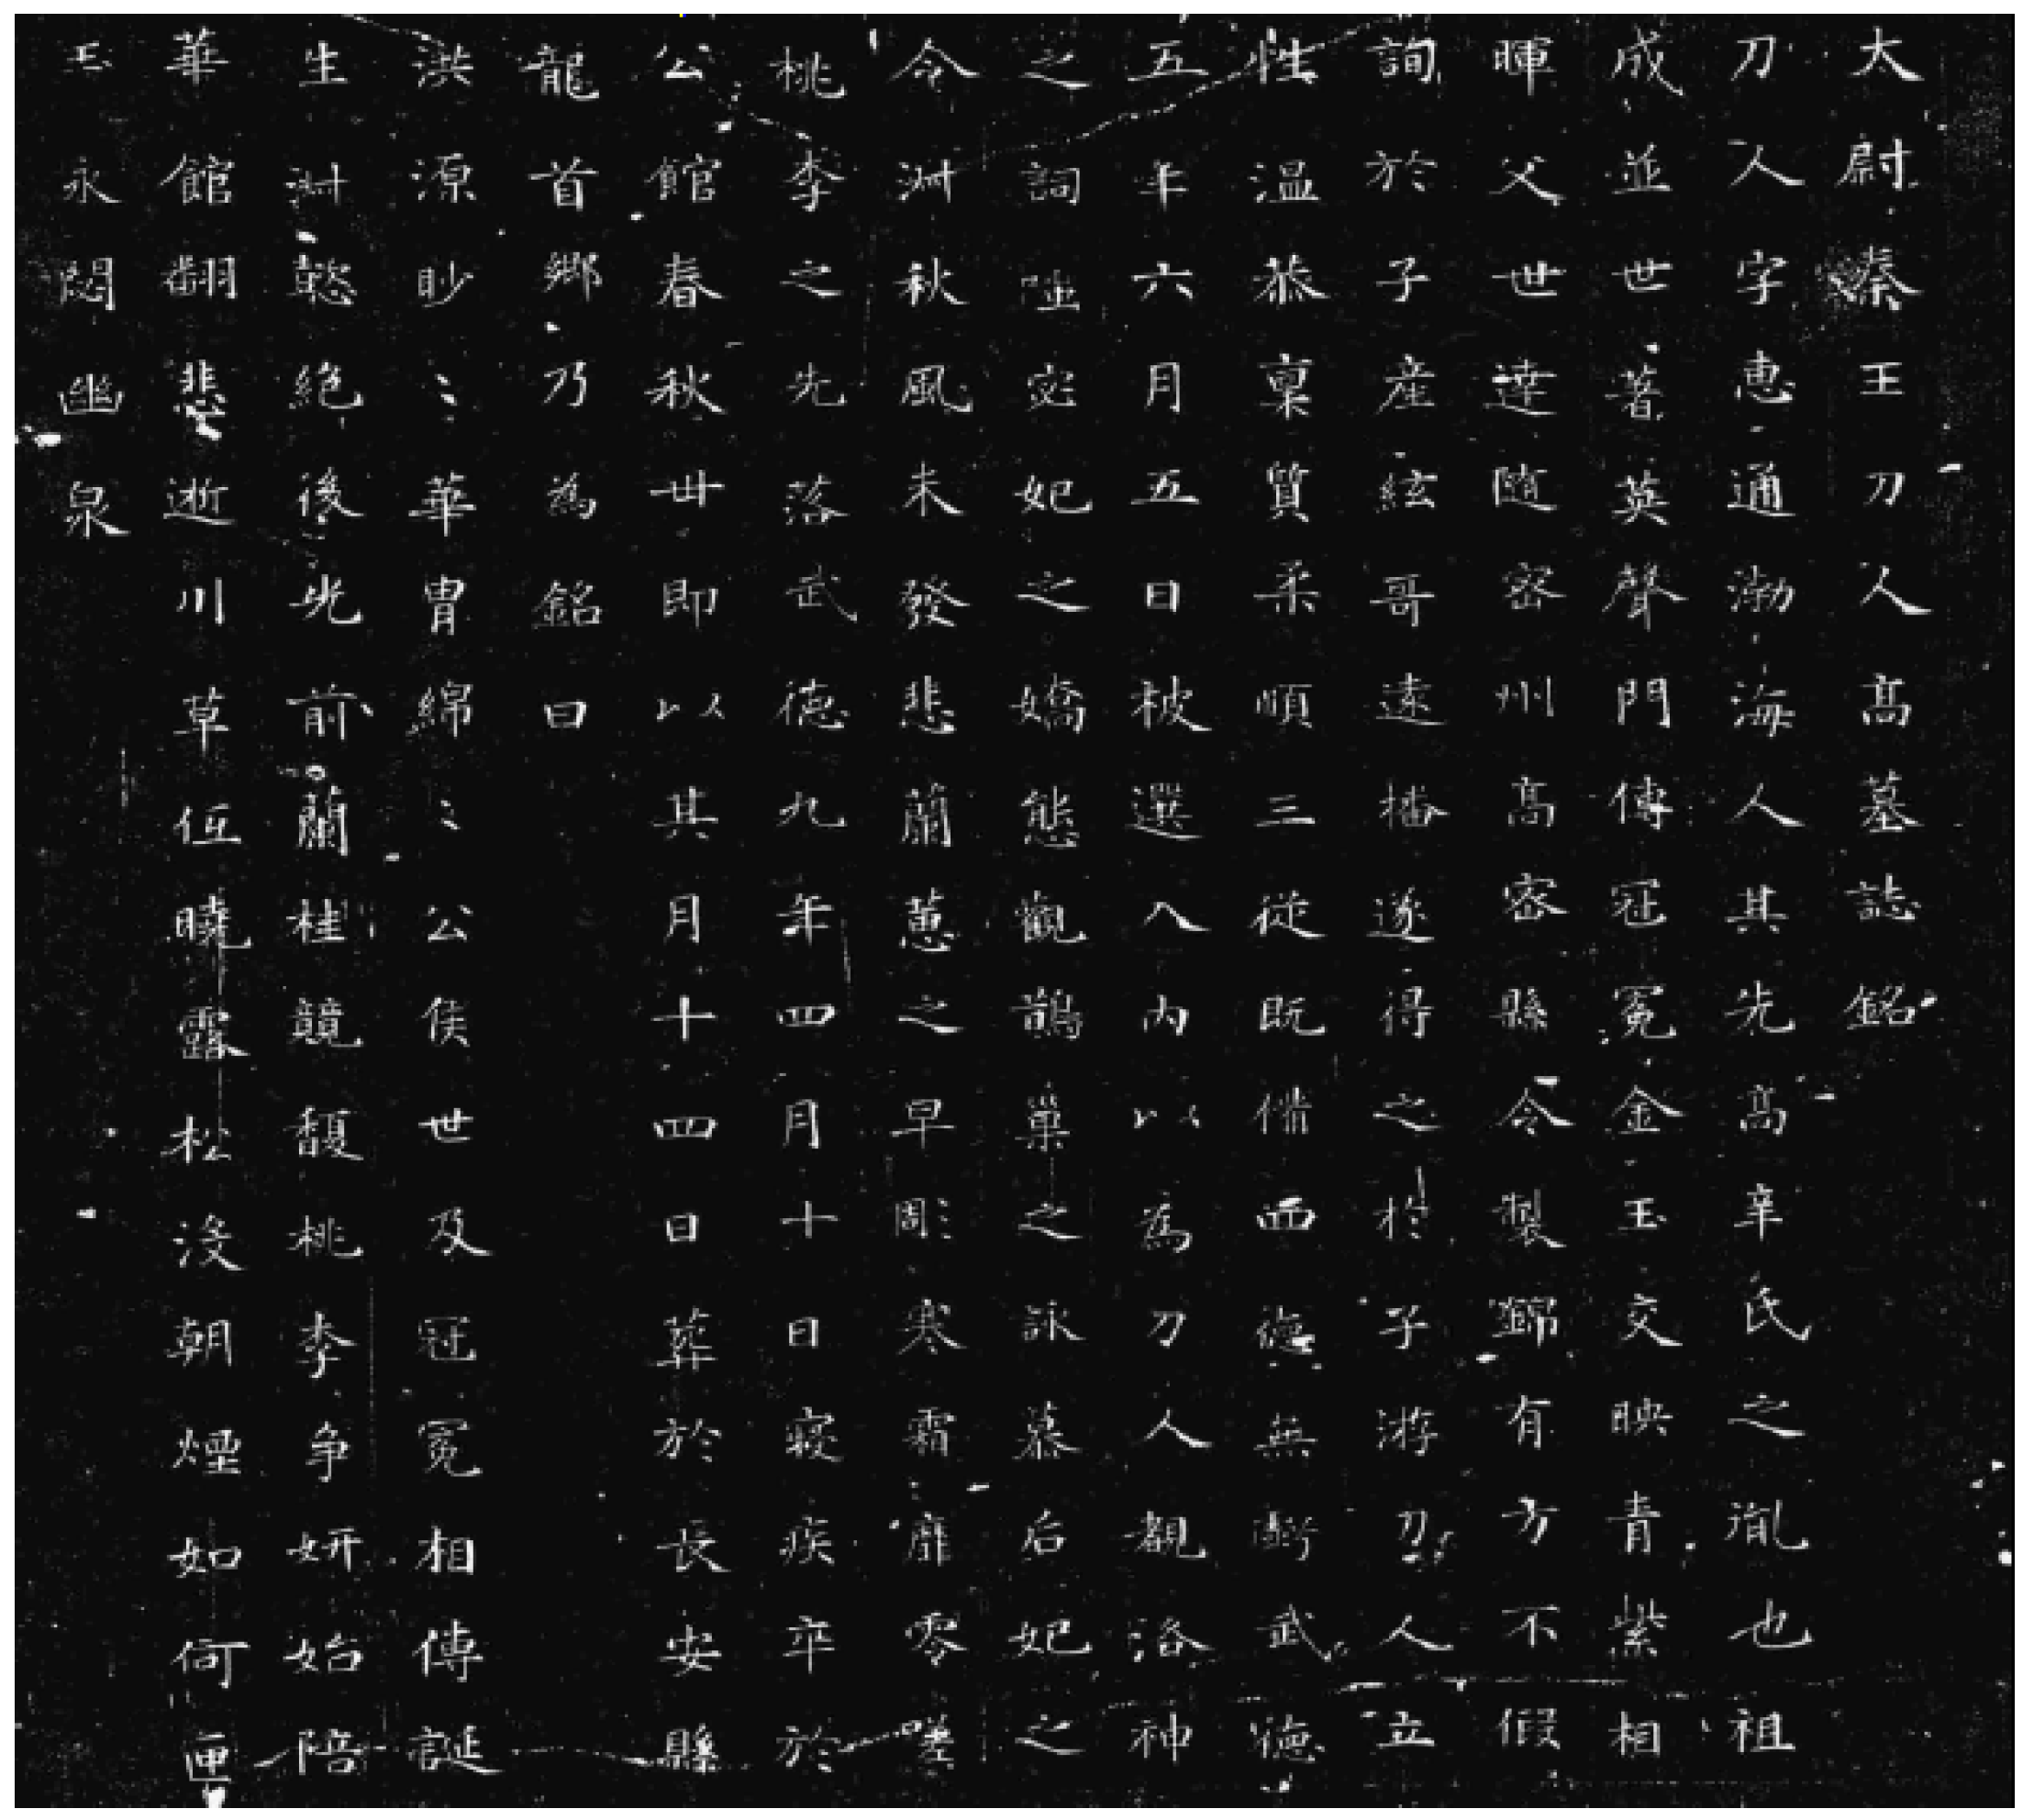 太尉秦王刀人高墓誌銘
刀人字恵通渤海人其先高辛氏之胤也祖
成並世著英聲門傳冠冕金玉交映青紫相
暉父世達随密州高密縣令製錦有方不假
詢於子産絃哥遠播遂得之於子游刀人立
性温恭稟質柔順三從既俻而德無虧武德
五年六月五日被選入內以為刀人觀洛神
之詞陋宓妃之嬌態觀鵲巢之詠慕后妃之
令淋秋風未發悲蘭蕙之早彫寒霜靡零嗟
桃李之先落武德九年四月十日寢疾卒於
公館春秋卅即以其月十四日葬於長安縣
龍首鄉乃為銘曰
洪源眇〻華胄綿〻公侯世及冠冕相傳誕
生淋懿絶後光前蘭桂競馥桃李争妍始陪
華館翻悲逝川草伍曉露松沒朝煙如何匣
玉永閟幽泉